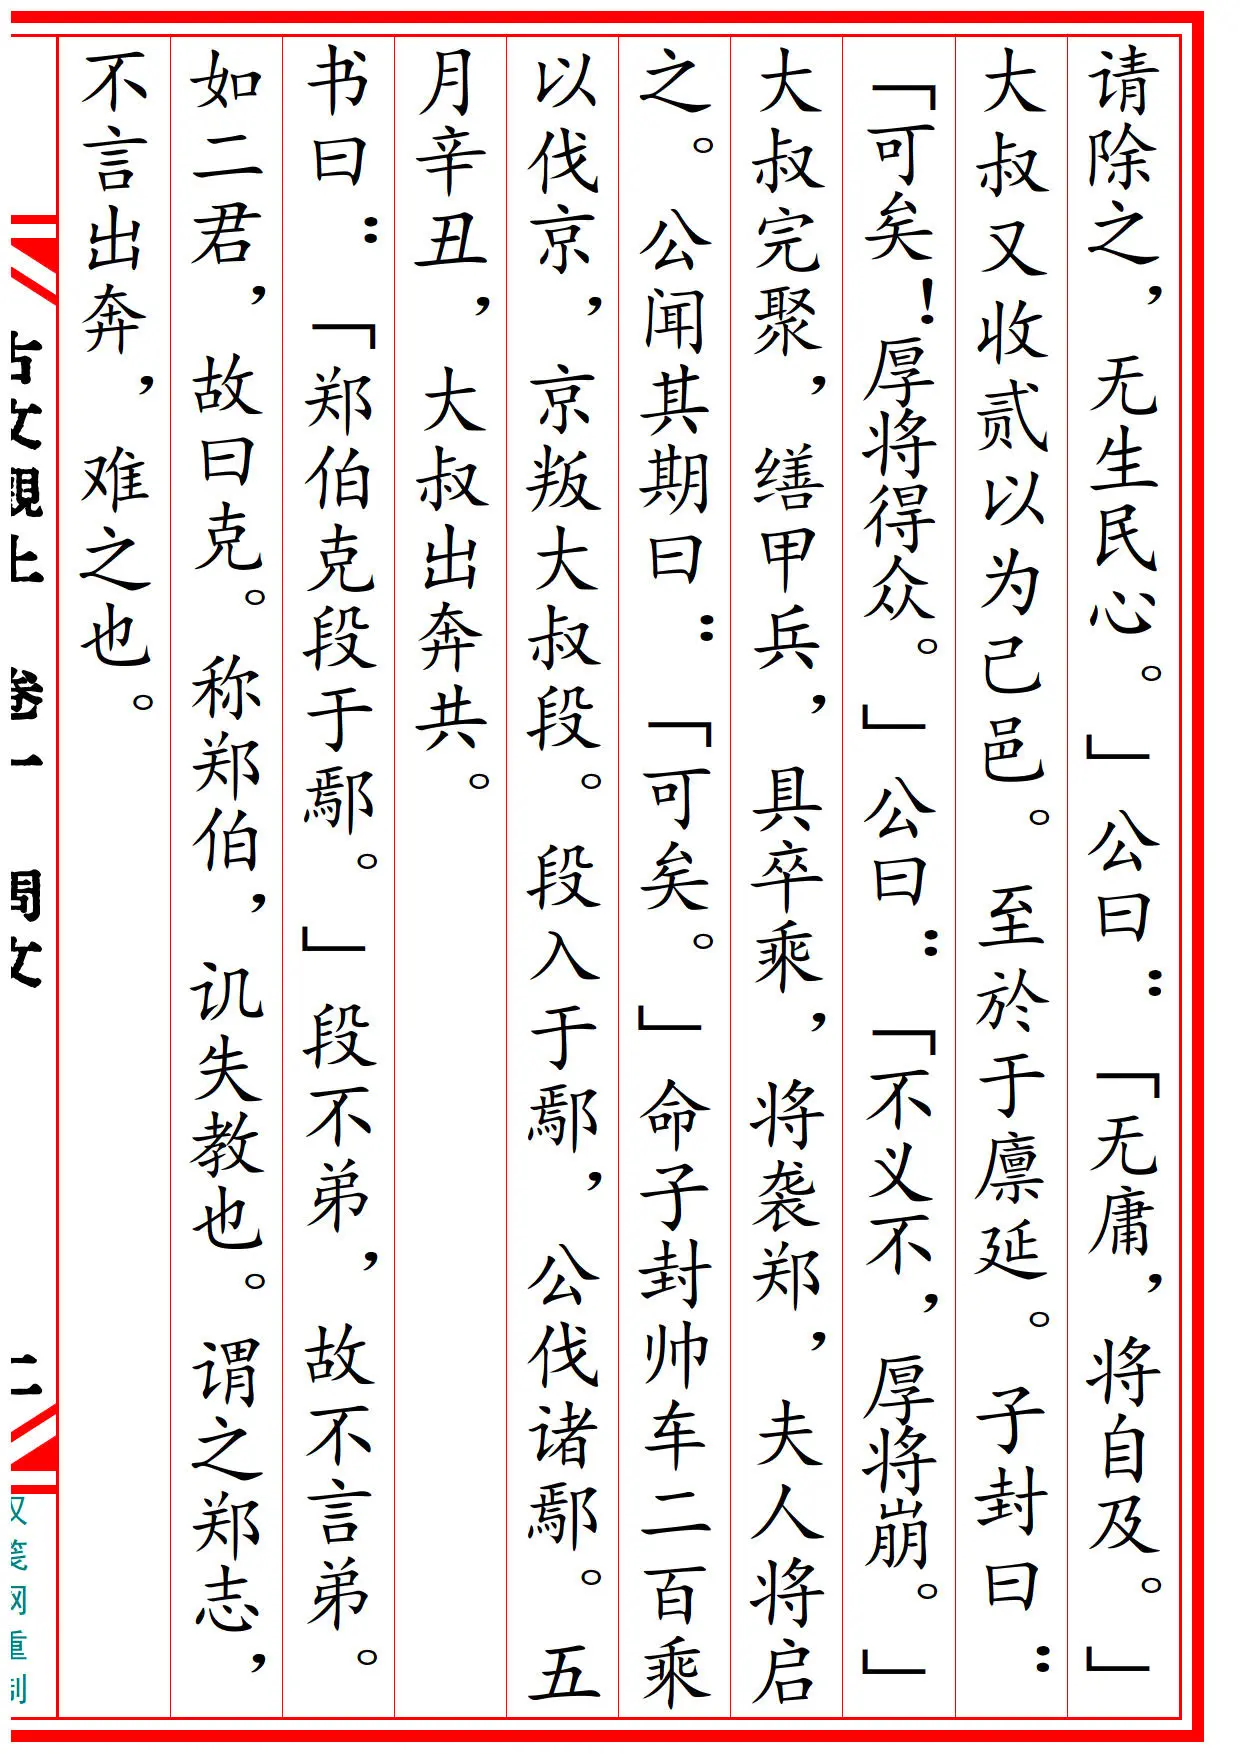 请除之，无生民心。」公曰：「无庸，将自及。」
大叔又收贰以为己邑。至於于廪延。子封曰：
「可矣！厚将得众。」公曰：「不义不，厚将崩。」
大叔完聚，缮甲兵，具卒乘，将袭郑，夫人将启
之。公闻其期曰：「可矣。」命子封帅车二百乘
以伐京，京叛大叔段。段入于鄢，公伐诸鄢。五
月辛丑，大叔出奔共。
书曰：「郑伯克段于鄢。」段不弟，故不言弟。
如二君，故曰克。称郑伯，讥失教也。谓之郑志，
不言出奔，难之也。
古文觀止 卷一 周文
二
汉笺网重制